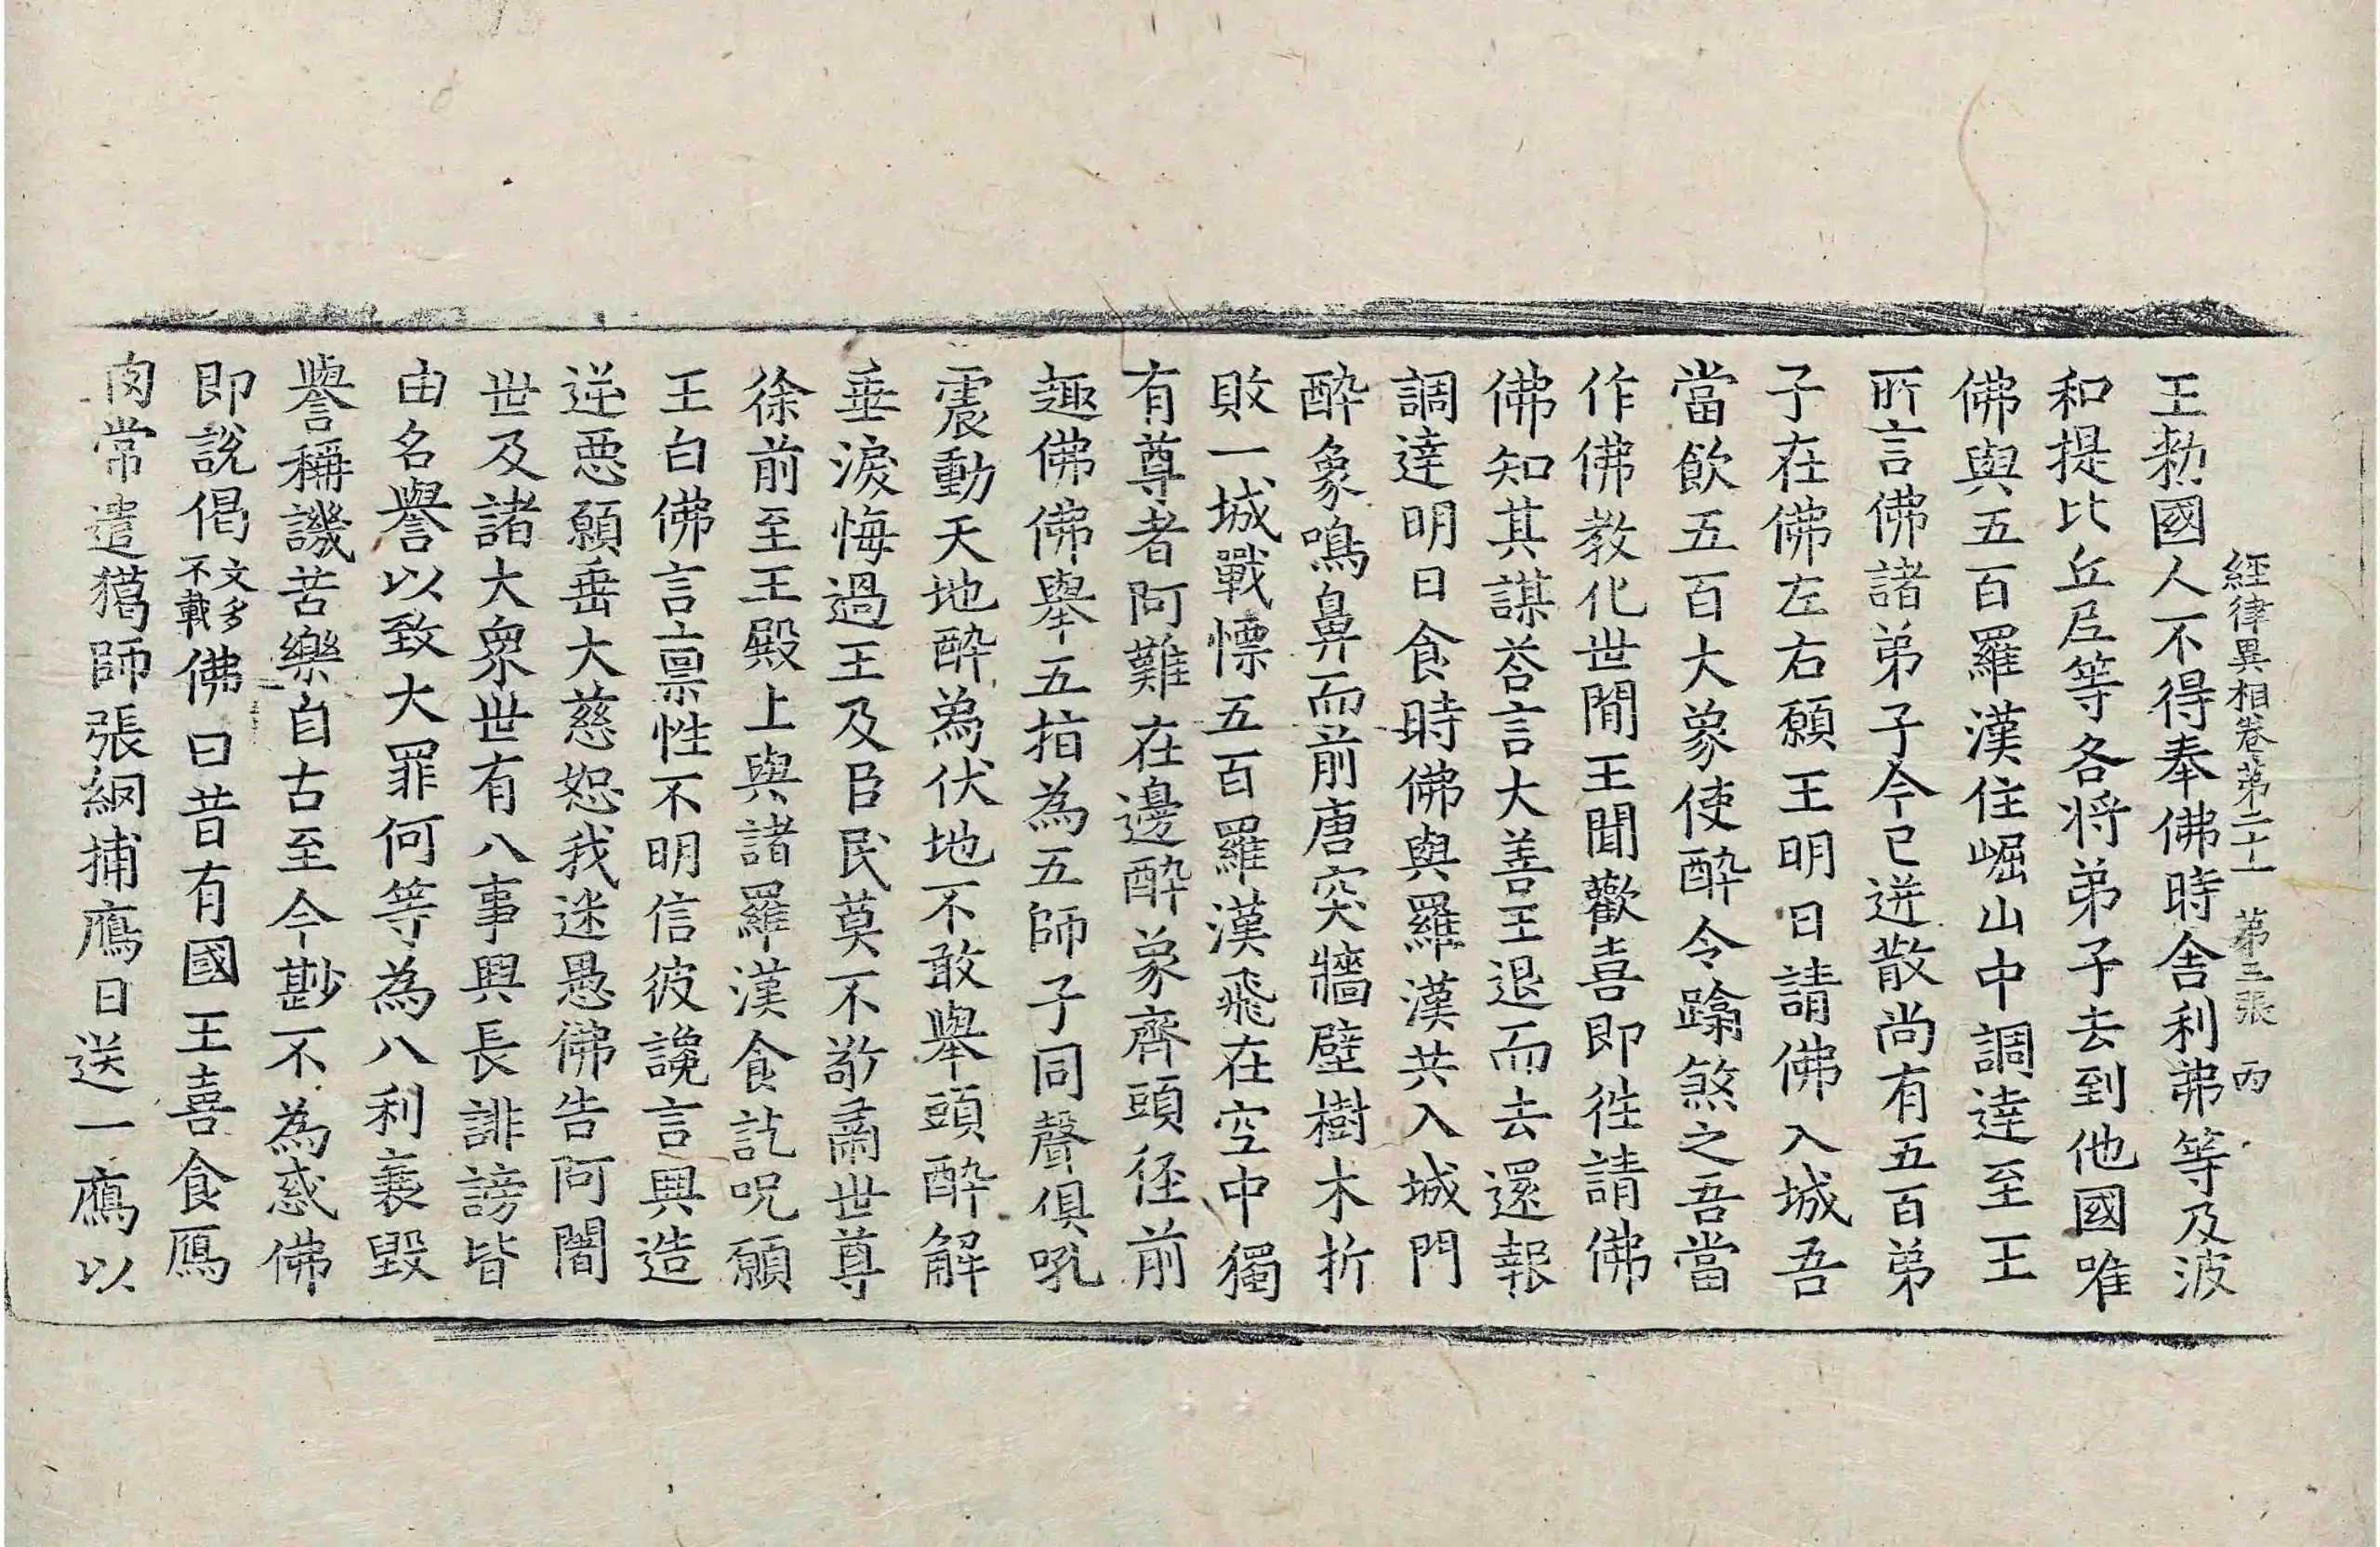 王勑國人不得奉佛時舍利弗等及波
經律異相卷第二十一　第三張　丙
和提比丘尼等各將弟子去到他國唯
佛與五百羅漢住崛山中調達至王
所言佛諸弟子今已迸散尚有五百弟
子在佛左右願王明日請佛入城吾
當飲五百大象使醉令蹹煞之吾當
作佛教化世間王聞歡喜即往請佛
佛知其謀荅言大善王退而去還報
調達明日食時佛與羅漢共入城門
醉象鳴鼻而前唐突牆壁樹木折
敗一城戰慄五百羅漢飛在空中獨
有尊者阿難在邊醉象齊頭徑前
趣佛佛舉五指為五師子同聲俱吼
震動天地醉為伏地不敢舉頭醉解
垂淚悔過王及臣民莫不敬肅世尊
徐前至王殿上與諸羅漢食訖呪願
王白佛言稟性不明信彼讒言興造
逆惡願垂大慈恕我迷愚佛告阿闍
世及諸大眾世有八事興長誹謗皆
由名譽以致大罪何等為八利衰毀
譽稱譏苦樂自古至今尠不為惑佛
即說偈文多不載佛曰昔有國王喜食鴈
肉常遣獦師張網捕鴈日送一鴈以